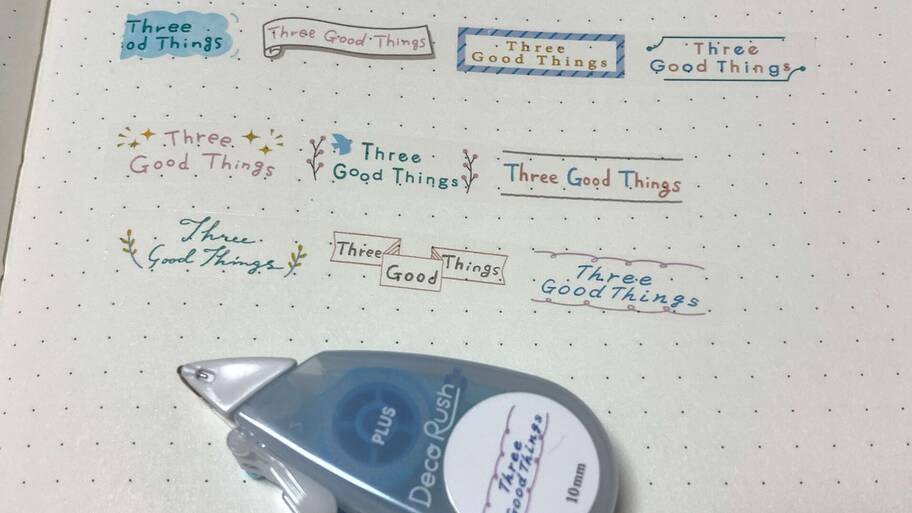 Three
od Things
Three Good Things
Three
Good Things
Three
Good Things
Three
Good Things
Three
Good Things
Three Good Things
Three
Good Things
Three
Good
Things
Three
Good Things
PLUS
Deco Rush
Three
Good Things
10mm